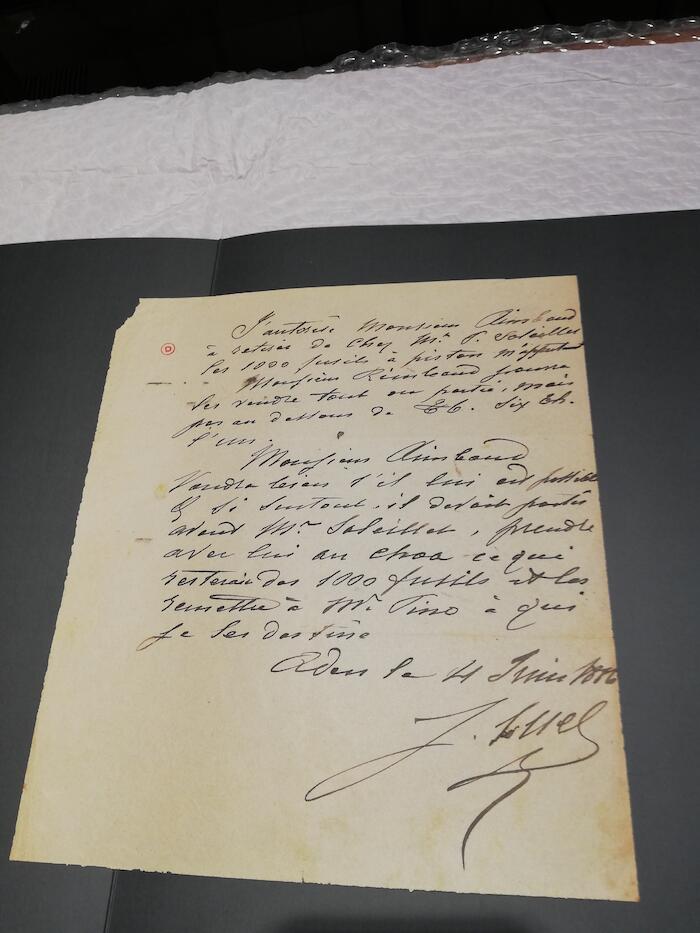 J'autorise Monsieur Rimbaud
à retirer de chez Mr. P. Soleillet
les 1000 fusils à piston m'appartenant
Monsieur Rimbaud pourra
les vendre tout ou partie, mais
pas au dessous de Th. Six Th.
l'un.
Monsieur Rimbaud
Voudra bien s'il lui est possible
& si surtout il devait partir
avant Mr. Soleillet, prendre
avec lui au Choa ce qui
resterait des 1000 fusils et les
remettre à Mr. Pino à qui
je les destine
Aden le 4 Juin 1886
J.